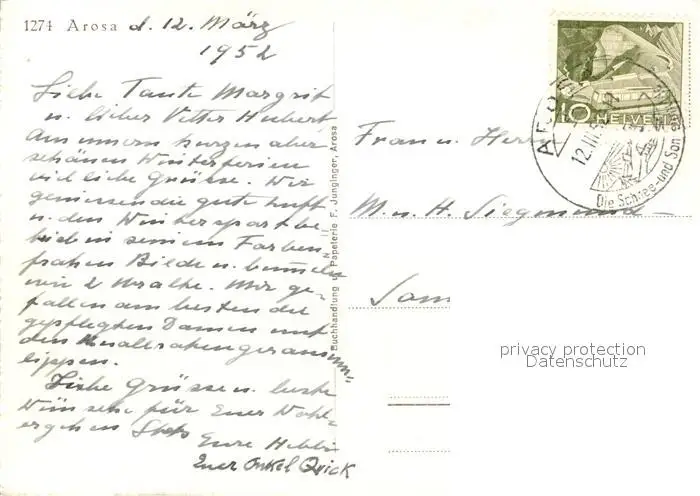 1274 Arosa d. 12. März
1952
Liebe Tante Margrit
u. lieber Vetter Hubert
Aus unsern kurzen aber
schönen Winterferien
viel liebe Grüsse. Wir
geniessen die gute Luft
u. den Wintersportbe-
trieb in seinem Farben-
frohen Bilde u. bummeln
wir 2 Uralte. Mir ge-
fallen am besten die
gepflegten Damen mit
den Knallroten
lippen.
Liebe Grüsse u. beste
Wünsche für Euer Wohl-
ergehen Stets Eure
Euer Onkel
Buchhandlung u. Papeterie F. Junginger, Arosa
10 HELVETIA
AROSA
12.III.52
Die Schnee- und Son
Frau u. Herr
M. u. H. Siegmund
Sam
privacy protection
Datenschutz